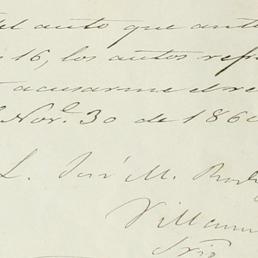 del auto que ante
16, los autos
acusarme el re
Nov.e 30 de 186
L. José M. Rod
Villa
Srio